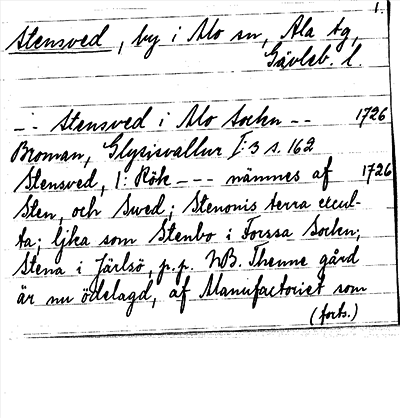 1.
Stensved, by i Alo sn, Ala tg,
Gävleb. l.
-- Stensved i Alo Sockn -- 1726
Broman, Glysisvallur I:3 s. 162
Stensved, 1: Rök --- nämnes af 1726
Sten, och Swed; Stenonis terra excul-
ta; lijka som Stenbo i Forssa Sockn;
Stena i Järlsö, p.p. NB. Thenne gård
är nu ödelagd, af Manufactoriet som
(forts.)